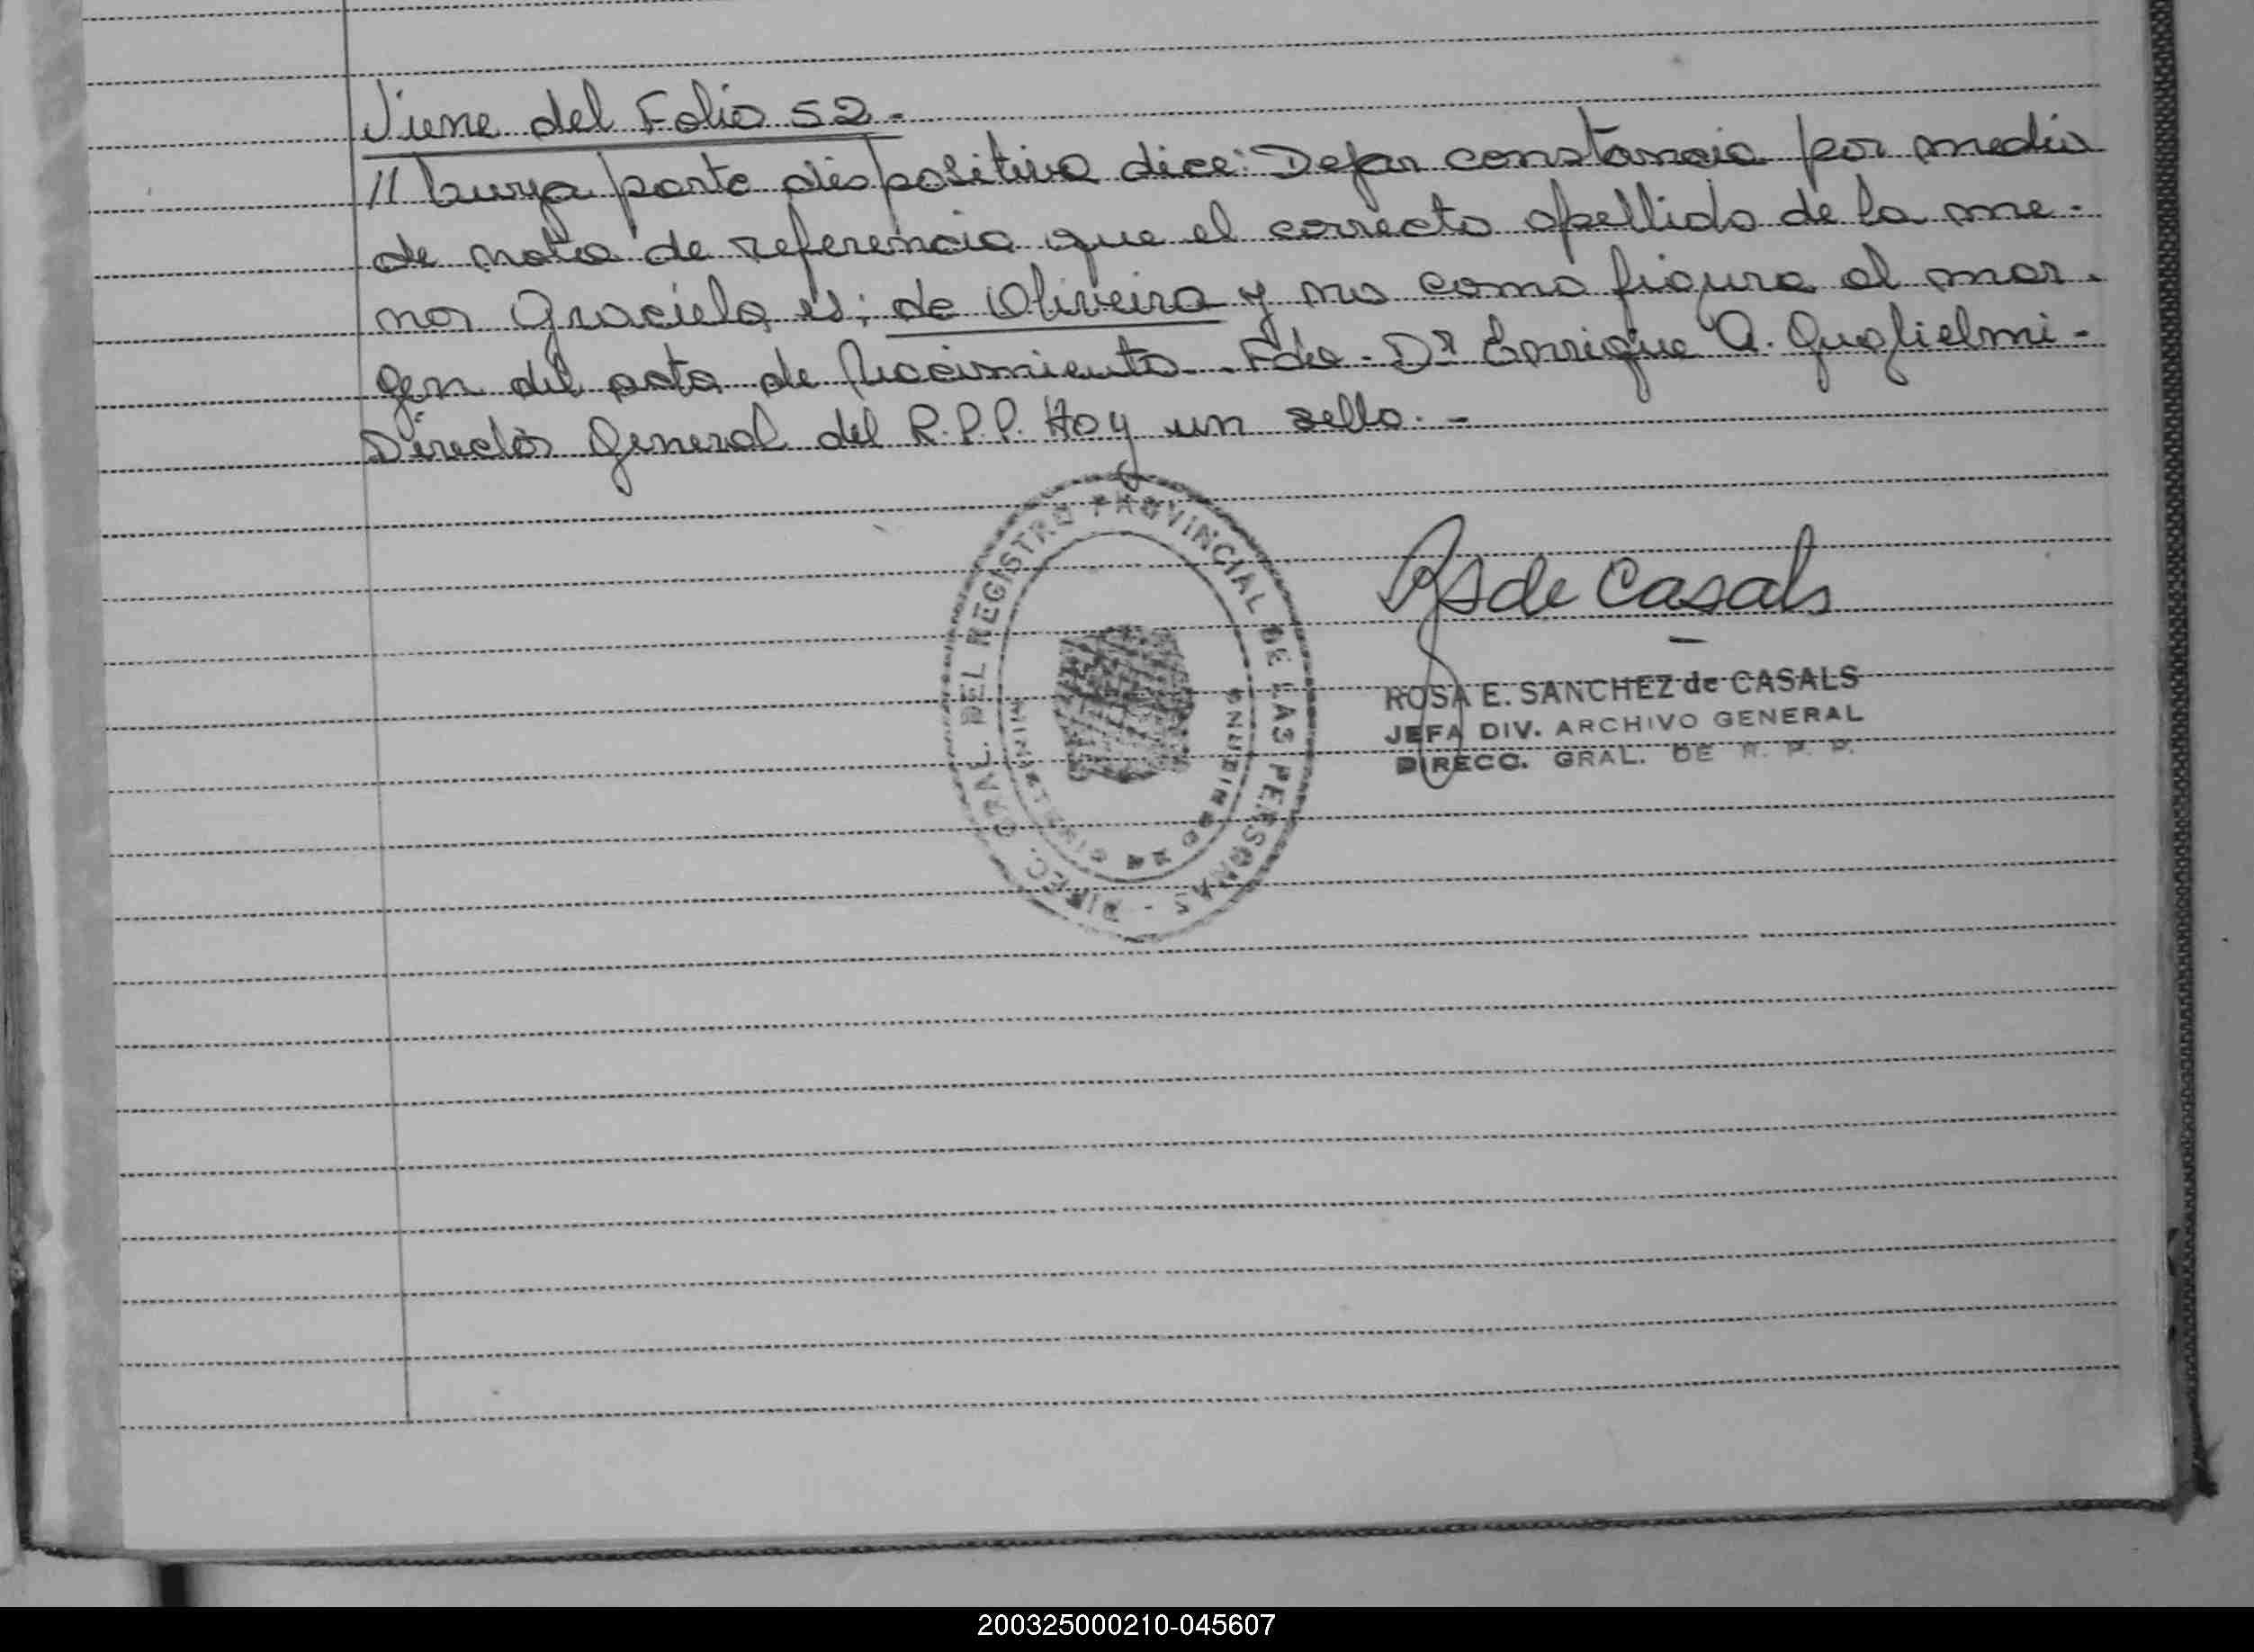 Viene del Folio 52.-
// cuya parte dispositiva dice: Dejar constancia por medio
de nota de referencia que el correcto apellido de la me-
nor Graciela es: de Oliveira y no como figura al mar-
gen del acta de Nacimiento. Fdo. Dr Enrique A. Guglielmi-
Director General del R.P.P. Hay un sello.-
DIREC. GRAL. DEL REGISTRO PROVINCIAL DE LAS PERSONAS -
RS de Casals
ROSA E. SANCHEZ de CASALS
JEFA DIV. ARCHIVO GENERAL
DIRECC. GRAL. DE R. P. P.
200325000210-045607